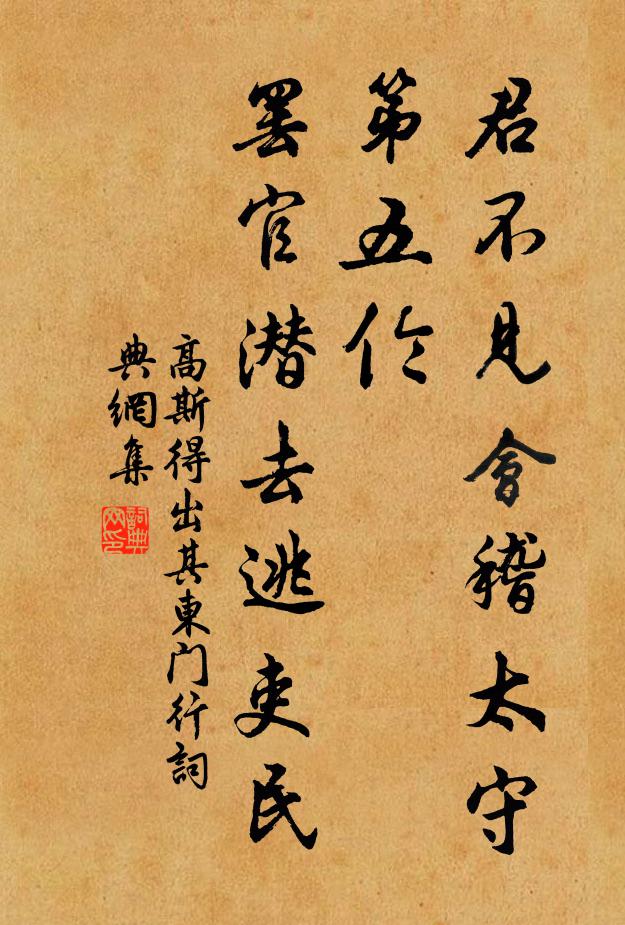 君不見會稽太守
第五伦
罢官潜去逃吏民
高斯得出其東门行詞
典網集
詞典网印